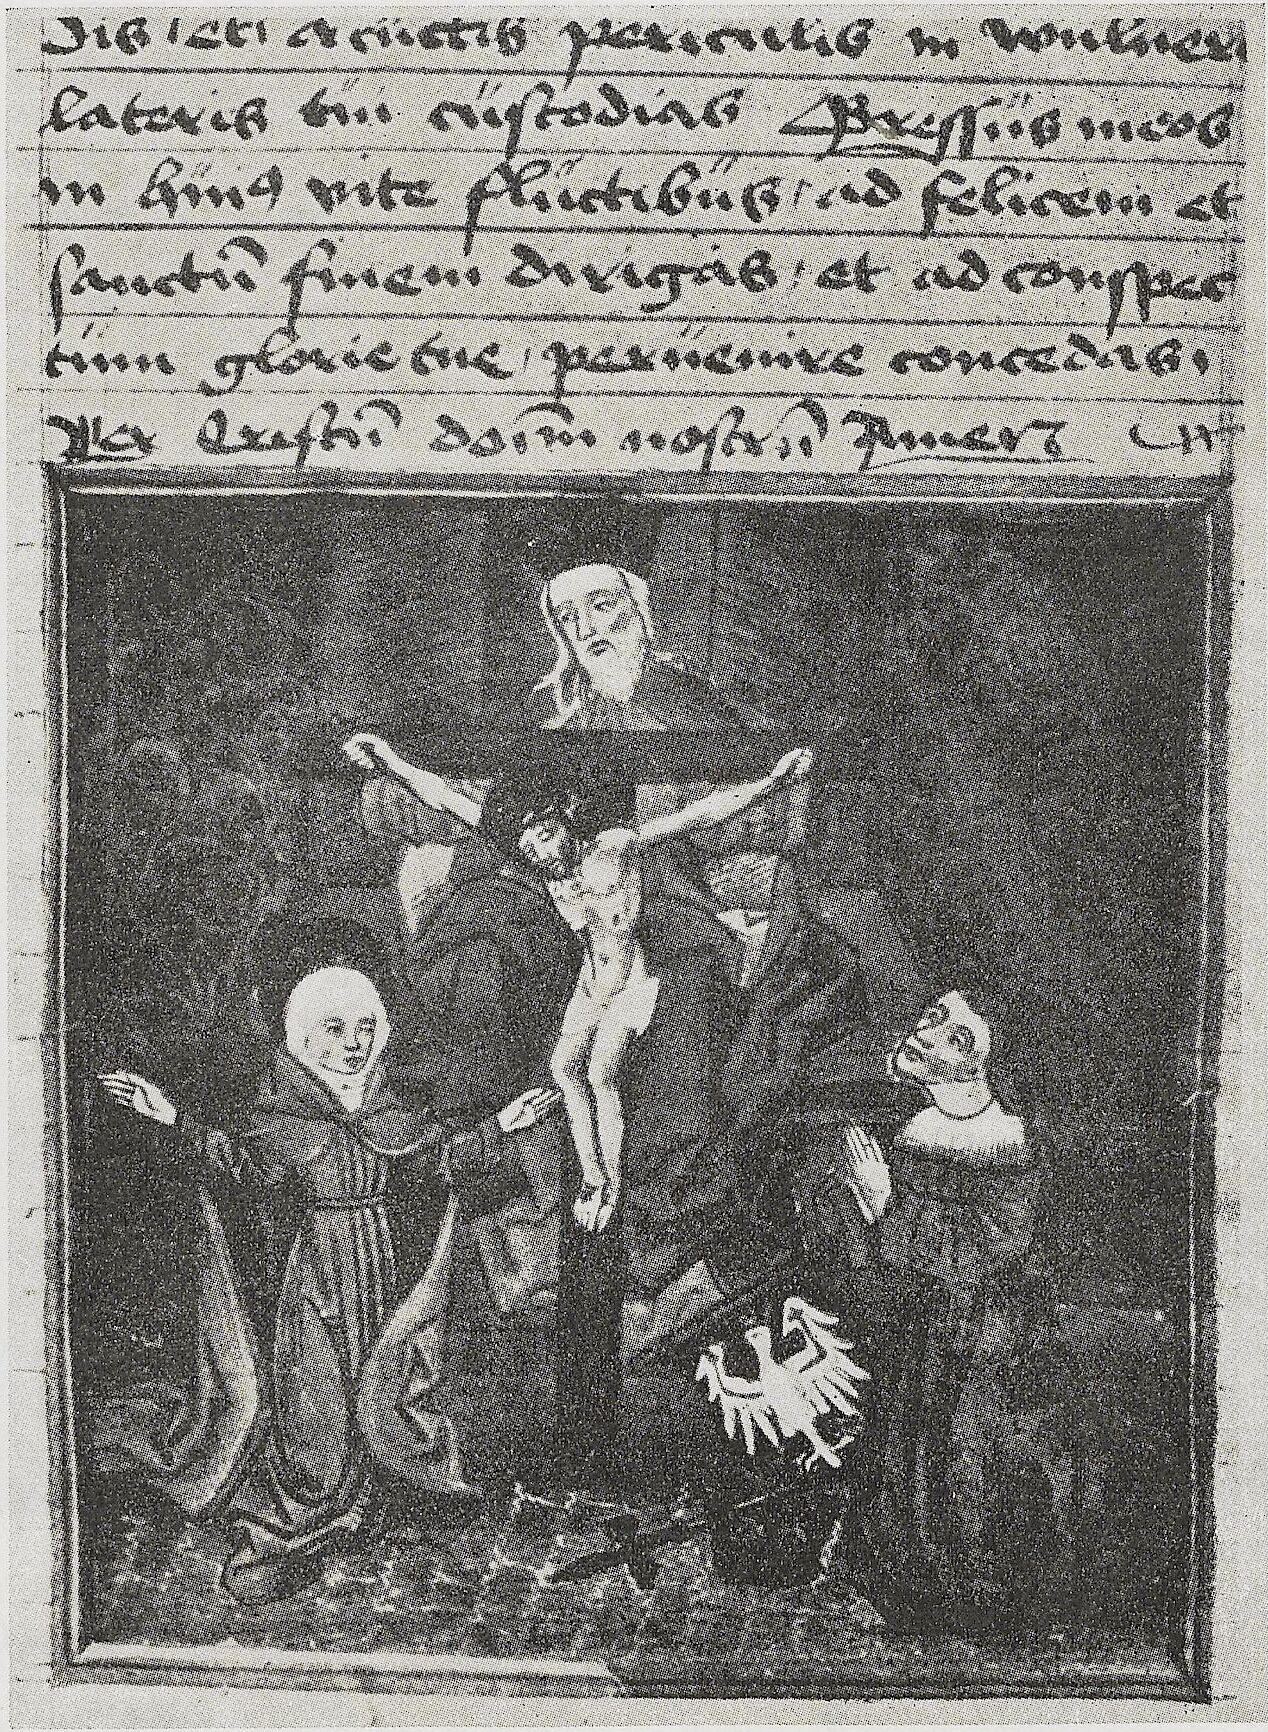 dis et a cūctis periculis in wulner
lateris tui custodias Gressus meos
in huiꝰ vite fluctibus ad felicem et
sanctū finem dirigas et ad conspec
tum glorie tue peruenire concedas
Per Cristū doīm nostrū Amen